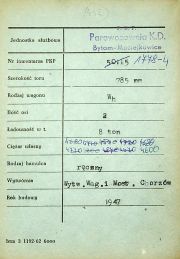 A-(5)
Jednostka służbowa
P.K.P.
Parowozownia K.D.
Bytom-Maciejkowice
Nr inwentarza PKP 50115 1778-4
Szerokość toru 785 mm
Rodzaj wagonu Wh
Ilość osi 2
Ładowność w t. 8 ton
Ciężar własny
4600
Rodzaj hamulca ręczny
Wytwórnia Wytw. Wag. i Most. Chorzów
Rok budowy 1947